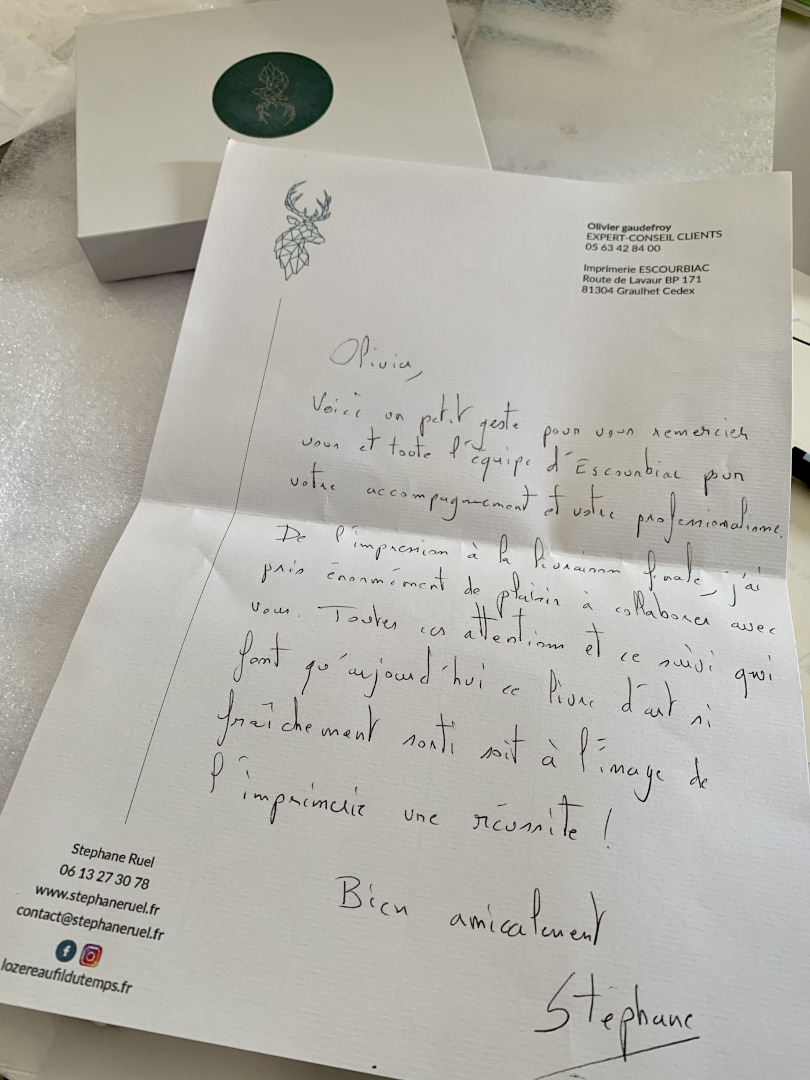 Olivier gaudefroy
EXPERT-CONSEIL CLIENTS
05 63 42 84 00
Imprimerie ESCOURBIAC
Route de Lavaur BP 171
81304 Graulhet Cedex
Olivier,
Voici un petit geste pour vous remercier
vous et toute l'équipe d'Escourbiac pour
votre accompagnement et votre professionnalisme.
De l'impression à la livraison finale, j'ai
pris énormément de plaisir à collaborer avec
vous. Toutes ces attentions et ce suivi qui
font qu'aujourd'hui ce livre d'art si
fraîchement sorti soit à l'image de
l'imprimerie une réussite !
Bien amicalement
Stéphane
Stephane Ruel
06 13 27 30 78
www.stephaneruel.fr
contact@stephaneruel.fr
lozereaufildutemps.fr